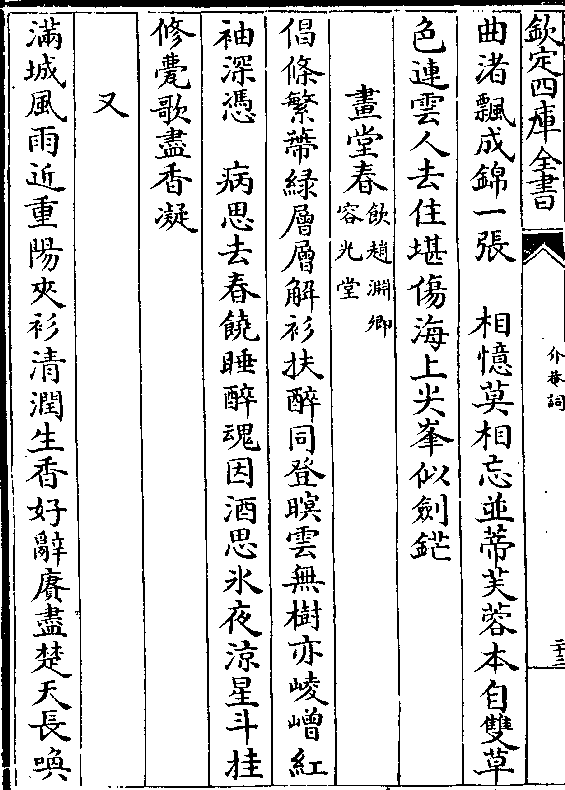 欽定四庫全書
介菴詞
二十三
曲渚飄成錦一張　相憶莫相忘並蔕芙蓉本自雙草
色連雲人去住堪傷海上尖峯似劍鋩
畫堂春飲趙淵卿容光堂
倡條繁蔕緑層層解衫扶醉同登暝雲無樹亦崚嶒紅
袖深憑　病思去春饒睡醉魂因酒思氷夜涼星斗挂
修甍歌盡香凝
又
滿城風雨近重陽夾衫清潤生香好辭賡盡楚天長喚